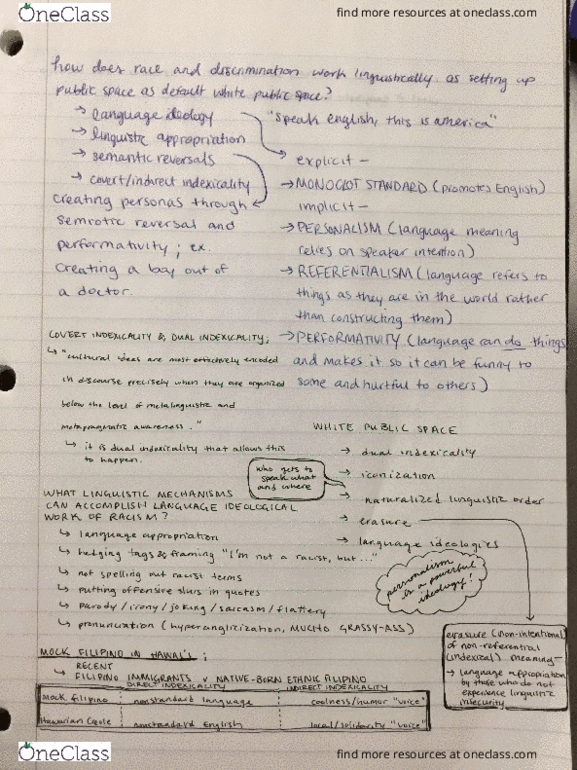 OneClass
find more resources at oneclass.com
how does race and discrimination work linguistically as setting up
public space as default white public space?
→ language ideology
→ linguistic appropriation
→ semantic reversals
→ covert/indirect indexicality
creating personas through
semiotic reversal and
performativity; ex.
creating a bay out of
a doctor.
"speak english, this is america"
explicit -
→ MONOGLOT STANDARD (promotes English)
implicit -
→ PERSONALISM (language meaning
relies on speaker intention)
→ REFERENTIALISM (language refers to
things as they are in the world rather
than constructing them)
→ PERFORMATIVITY (language can do things
and makes it so it can be funny to
some and hurtful to others)
COVERT INDEXICALITY & DUAL INDEXICALITY;
↳ "cultural ideas are most effectively encoded
in discourse precisely when they are organized
below the level of metalinguistic and
metapragmatic awareness."
↳ it is dual indexicality that allows this
to happen.
WHITE PUBLIC SPACE
→ dual indexicality
→ iconization
→ naturalized linguistic order
→ erasure
→ language ideologies
who gets to
speak what
and where
personalism
is a powerful
ideology!
WHAT LINGUISTIC MECHANISMS
CAN ACCOMPLISH LANGUAGE IDEOLOGICAL
WORK OF RACISM?
↳ language appropriation
↳ hedging tags & framing "I'm not a racist, but..."
↳ not spelling out racist terms
↳ putting offensive slurs in quotes
↳ parody/irony/joking/sarcasm/flattery
↳ pronunciation (hyperanglicization, MUCHO GRASSY-ASS)
erasure (non-intentional)
of non-referential
(indexical) meaning-
→ language appropriation
by those who do not
experience linguistic
insecurity
MOCK FILIPINO IN HAWAI'I;
RECENT
↳ FILIPINO IMMIGRANTS v NATIVE-BORN ETHNIC FILIPINO
DIRECT INDEXICALITY INDIRECT INDEXICALITY
Mock filipino nonstandard language coolness/humor "voice"
Hawaiian Creole nonstandard English local/solidarity "voice"
OneClass
find more resources at oneclass.com